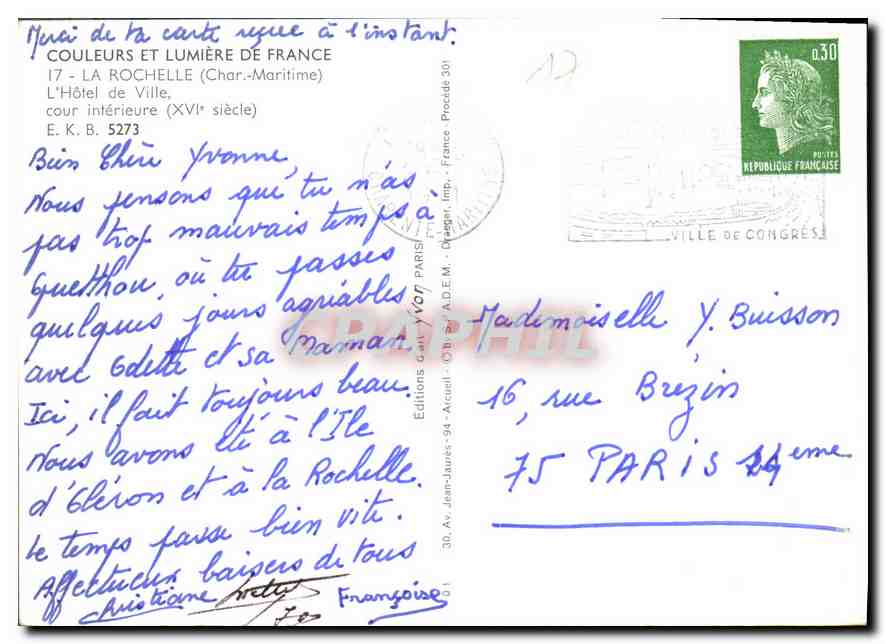 Merci de ta carte reçue à l'instant.
COULEURS ET LUMIÈRE DE FRANCE
17 - LA ROCHELLE (Char.-Maritime)
L'Hôtel de Ville,
cour intérieure (XVIe siècle)
E. K. B. 5273
Bien Chère Yvonne,
Nous pensons que tu n'as
pas trop mauvais temps à
Quetthou, où tu passes
quelques jours agréables
avec Odette et sa Maman.
Ici, il fait toujours beau.
Nous avons été à l'Ile
d'Oléron et à la Rochelle.
Le temps passe bien vite.
Affectueux baisers de tous
Christiane
Françoise
Editions d'art YVON PARIS
30, Av. Jean-Jaurès - 94 - Arcueil - © by S.P.A.D.E.M. - Draeger, Imp. - France - Procédé 301
17
0,30
POSTES
REPUBLIQUE FRANÇAISE
VILLE DE CONGRÈS
CHARENTE MARITIME
CPAPHIL
Mademoiselle Y. Buisson
16, rue Brézin
75 PARIS 14eme